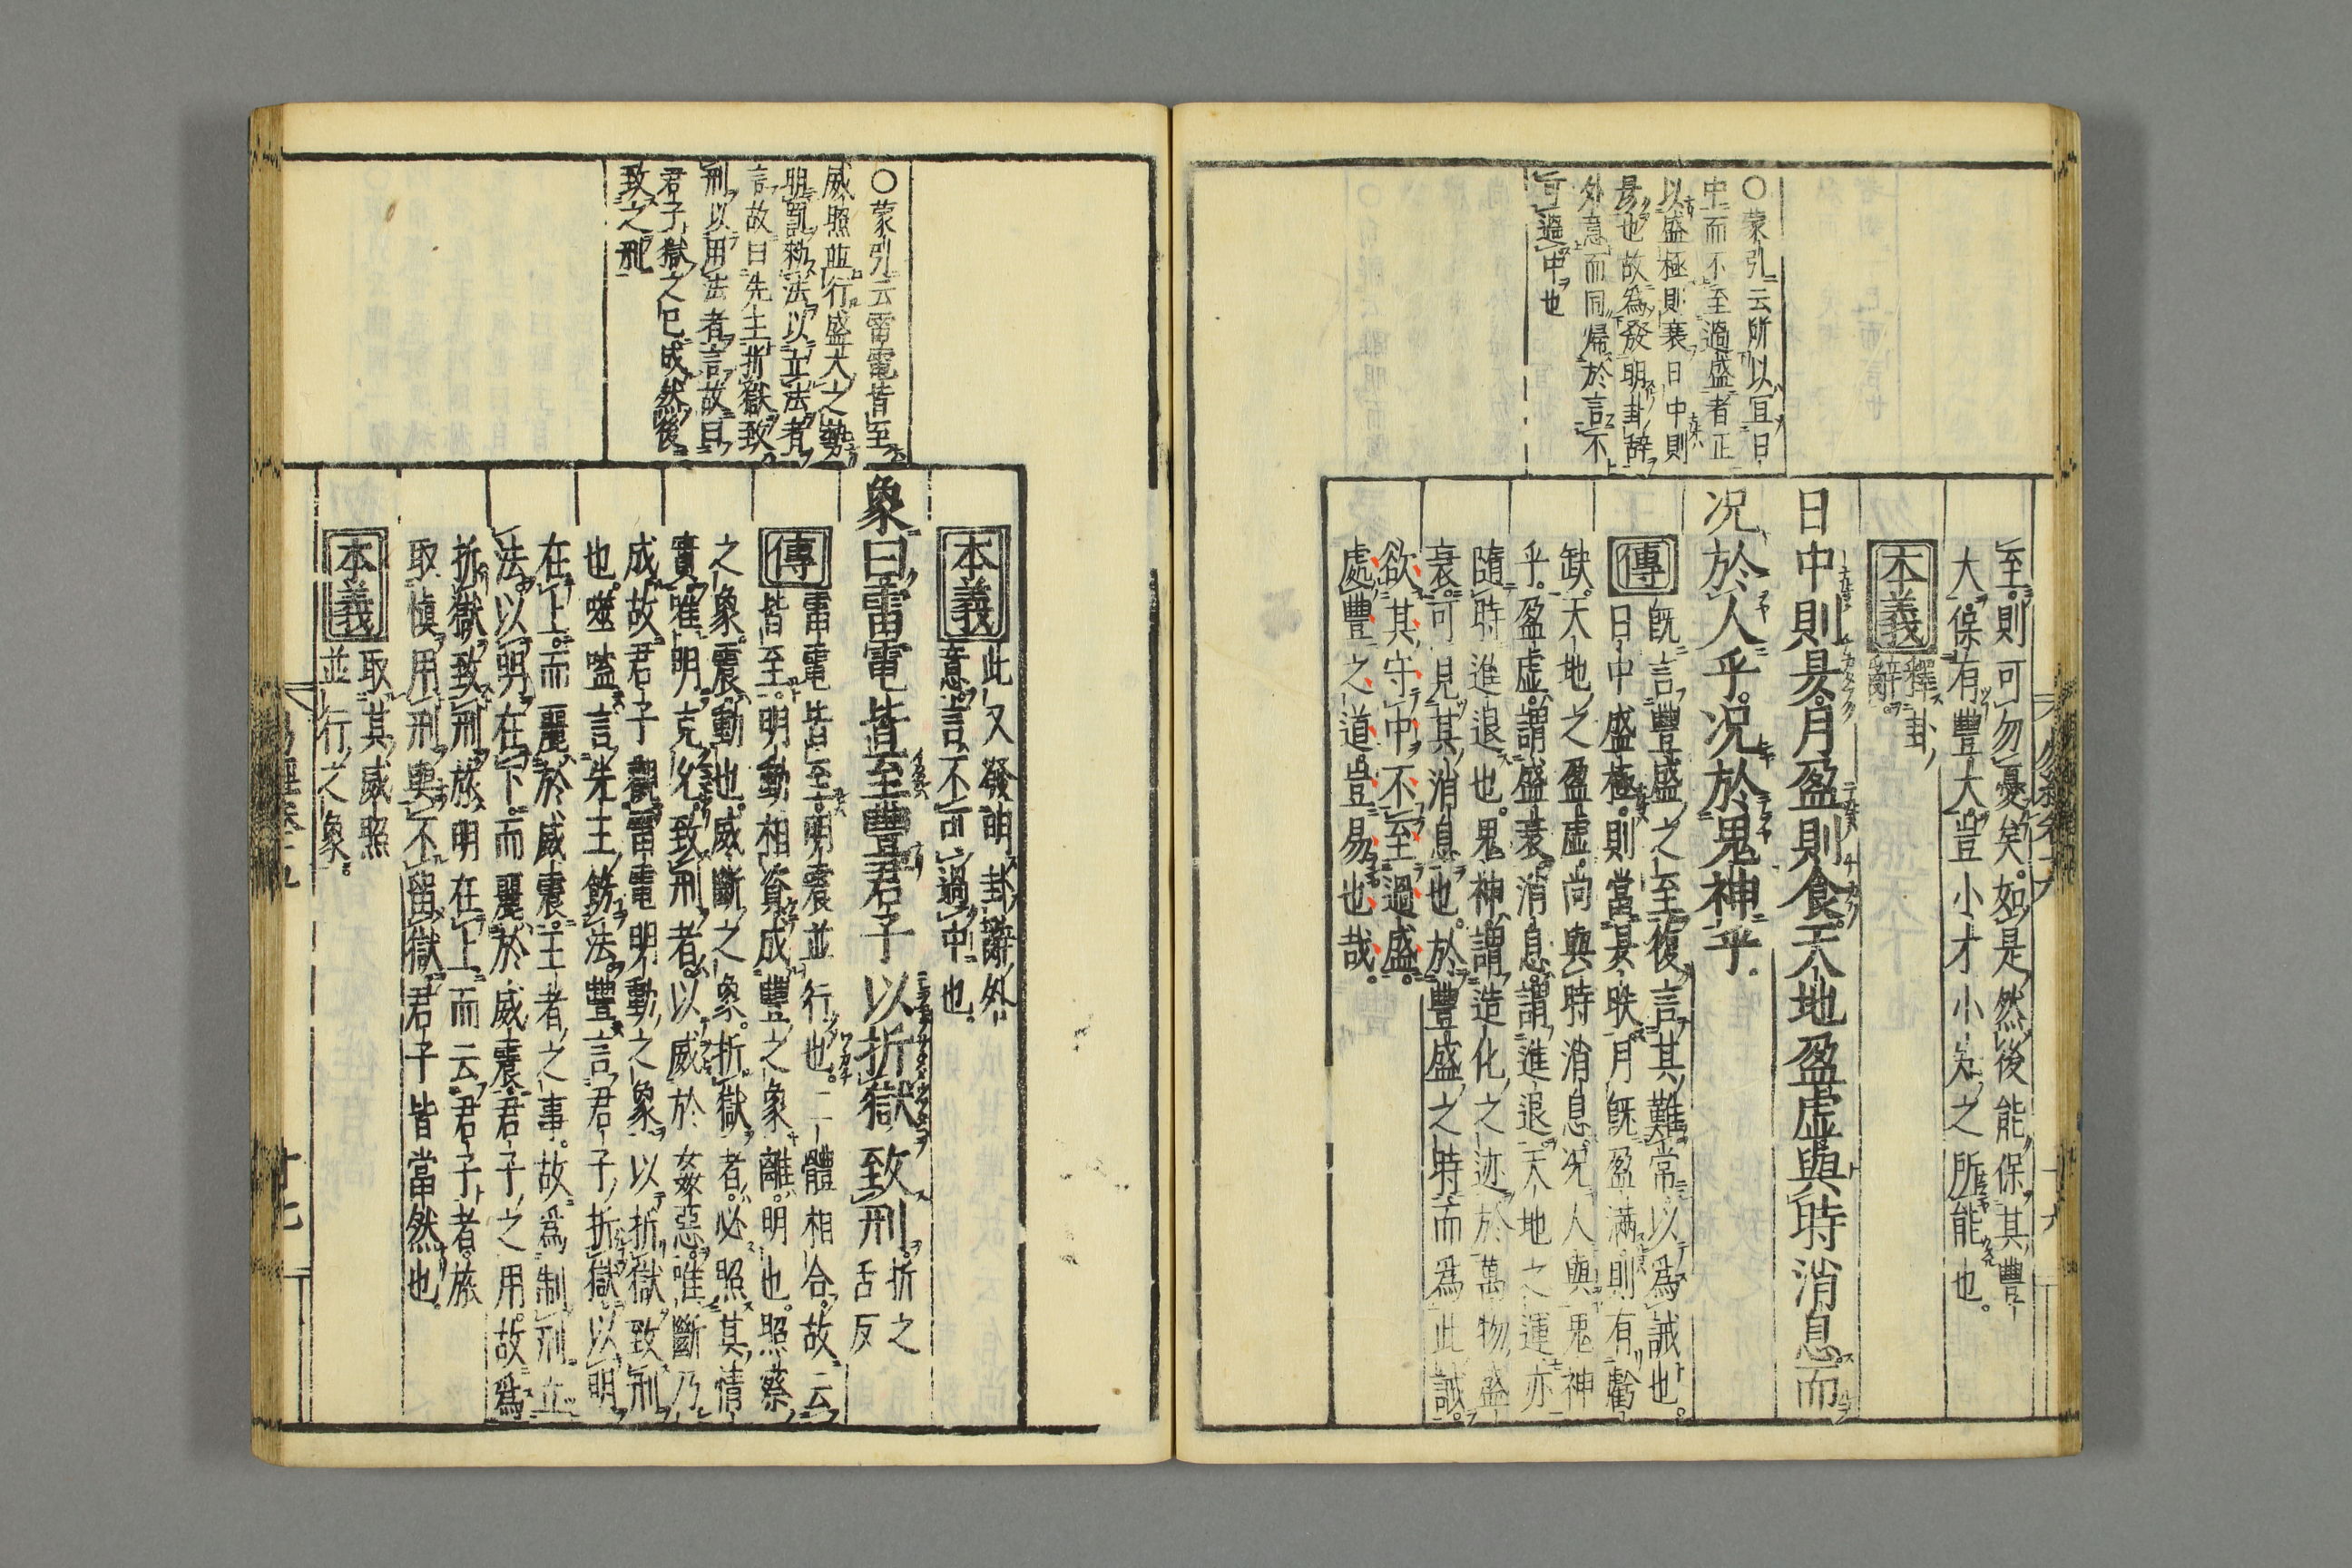 至則可勿憂矣。如是然後能保其豐
大。保有豐大。豈小才小知之所能也。
本義
釋卦
辭。
日中則昃。月盈則食。天地盈虛與時消息。而
况於人乎。况於鬼神乎。
傳
既言豐盛之至復言其難常以為誡也。
日中盛極。則當昃昳月既盈滿則有虧
缺。天地之盈虛。尚與時消息。况人與鬼神
乎。盈虛。謂盛衰。消息。謂進退。天地之運亦
隨時進退也。鬼神。謂造化之迹於萬物盛
衰。可見其消息也。於豐盛之時而為此誡。
欲其守中不至過盛。
處豐之道。豈易也哉。
○蒙引云所以宜日
中而不至過盛者正
以盛極則衰日中則
昃也故為發明卦辭
外意而同帰於言不
可過中也
本義
此又發明卦辭外
意。言不可過中也。
象曰雷電皆至豐君子以折獄致刑。
折之
舌反
傳
雷電皆至。明震並行也。二體相合。故云
皆至。明動相資。成豐之象。離。明也。照察
之象。震。動也。威斷之象。折獄者。必照其情
實。唯明克允。致刑者。以威於姦惡。唯斷乃
成。故君子觀雷電明動之象。以折獄致刑
也。噬嗑言先王飭法。豐言君子折獄。以明
在上。而麗於威震。王者之事。故為制刑立
法。以明在下。而麗於威震。君子之用。故為
折獄致刑。旅明在上。而云君子者。旅
取慎用刑與不留獄。君子皆當然也。
本義
取其威照
並行之象。
○蒙引云雷電皆至
威照並行盛大之勢
明罰勅法以立法者
言故曰先王折獄致
刑以用法者言故曰
君子獄之已成然後
致之刑